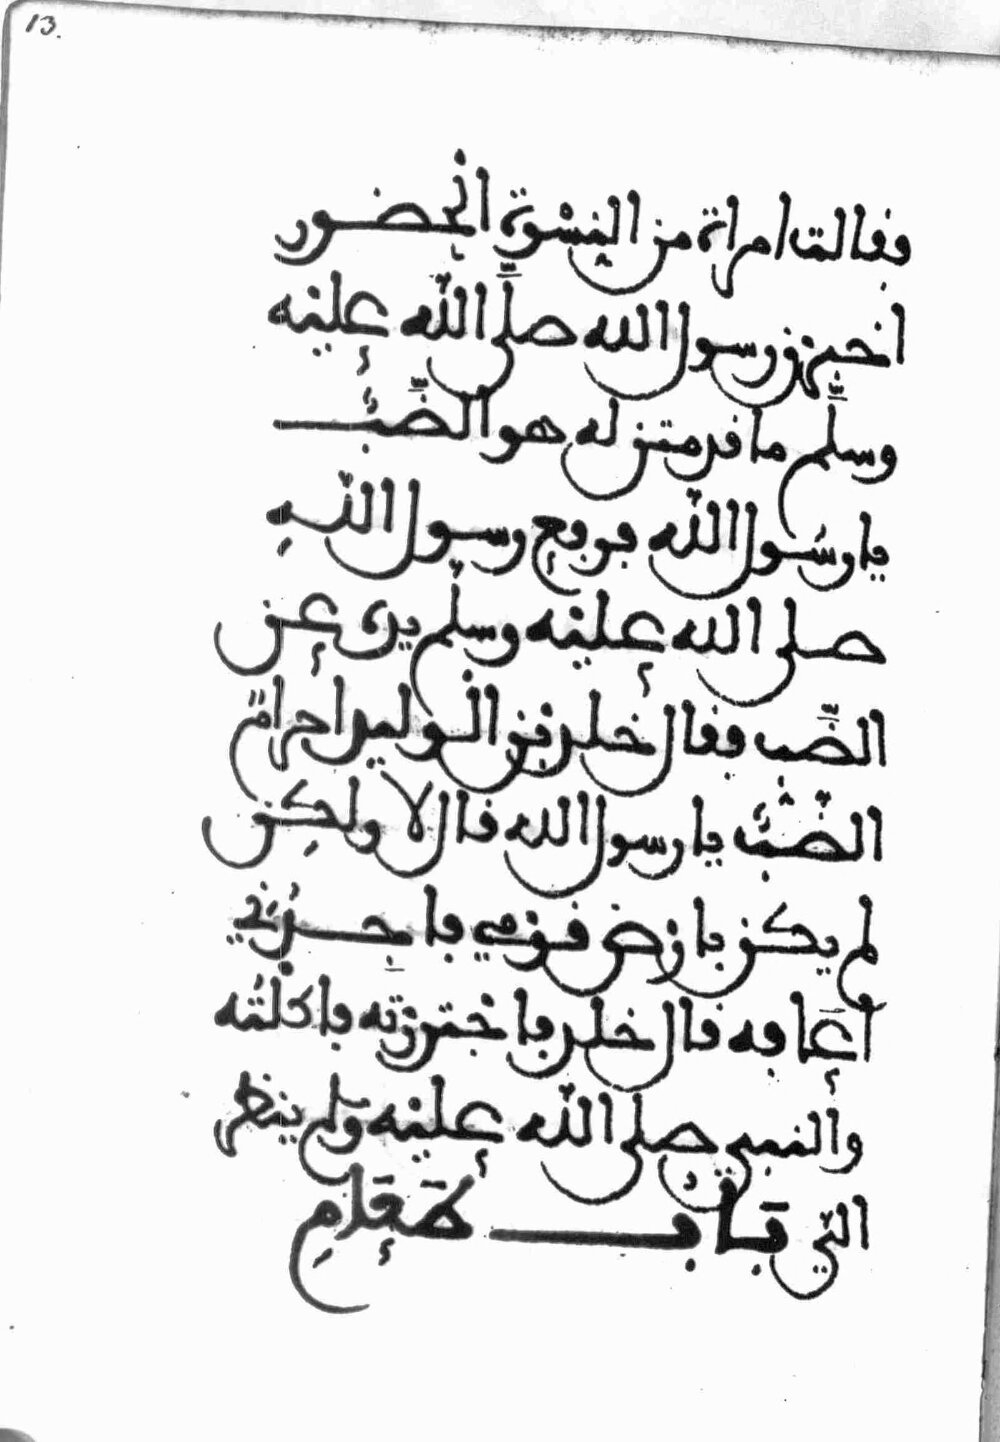 13.
فقالت امراة من النِسْوة الْحضور
اخبرن رسول الله صلَّى اللّه عليْه
وسلَّم ما قدمتن له هو الضَّبُّ
يا رسُول اللّه فرفع رسول اللّهِ
صلى الله عليْه وسلّم يده عن
الضَّب فقال خلد بْن الْوليد احرامٌ
الضّبُّ يا رسول الله قال لا ولكِن
لم يكن بارْض قوْمي فاجدُنِي
أعَافه قال خلد فاجْتررْته فاكلْتُه
والنبي صلى اللّه عليْه وَلم ينظر
التي بَاب طَعَامِ